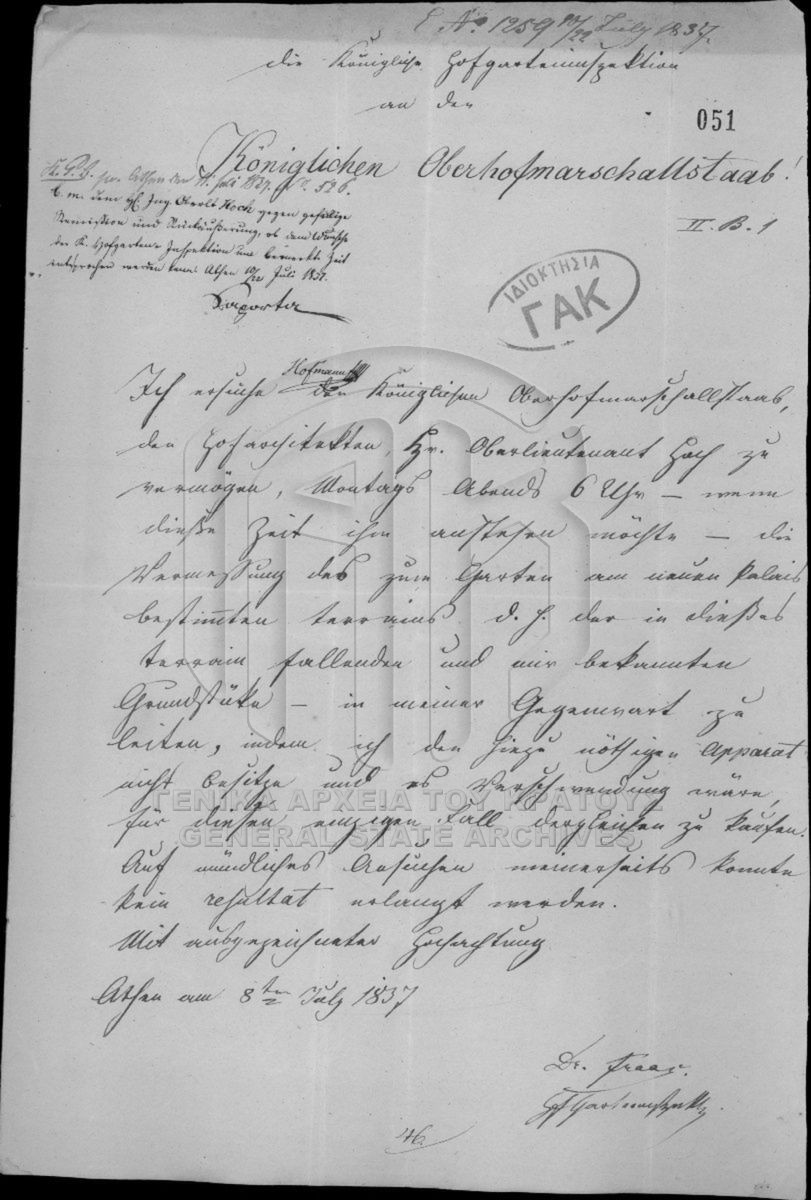 E No 1259 10/22 July 1837.
die Königliche Hofgarteninspektion
an den
051
Königlichen Oberhofmarschallstaab!
II. B. 1
pr. Athen den 11. Juli 1837. No. 526.
b. m. dem H. Ing. Oberlt Hoch gegen gefällige
Remission und Rückäußerung, ob dem Wunsche
der K. Hofgarten-Inspektion um bemerkte Zeit
entsprochen werden kann. Athen 10/22 Juli 1837.
Saporta
ΙΔΙΟΚΤΗΣΙΑ
ΓΑΚ
Hofmann
Ich ersuche den Königlichen Oberhofmarschallstaab,
den Hofarchitekten, Hr. Oberlieutenant Hoch zu
vermögen, Montags Abends 6 Uhr – wenn
dieße Zeit ihm anstehen möchte – die
Vermessung des zum Garten am neuen Palais
bestimten terrains d. h. der in dießes
terrain fallenden und mir bekannten
Grundstüke – in meiner Gegenwart zu
leiten, indem ich den hiezu nöthigen Apparat
nicht besitze und es Verschwendung wäre,
für diesen einzigen Fall dergleichen zu kaufen.
Auf mündliches Ansuchen meinerseits konnte
kein resultat erlangt werden.
Mit ausgezeichneter Hochachtung
Athen am 8ten July 1837
Dr. Fraas.
Hofgarteninspektor
46.
ΓΕΝΙΚΑ ΑΡΧΕΙΑ ΤΟΥ ΚΡΑΤΟΥΣ
GENERAL STATE ARCHIVES